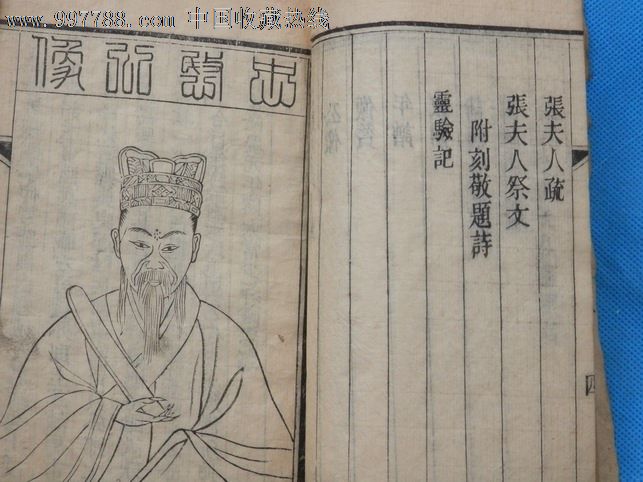 www.997788.com 中国收藏热线
張夫人疏
張夫人祭文
附刻敬題詩
靈驗記
四
忠愍公像